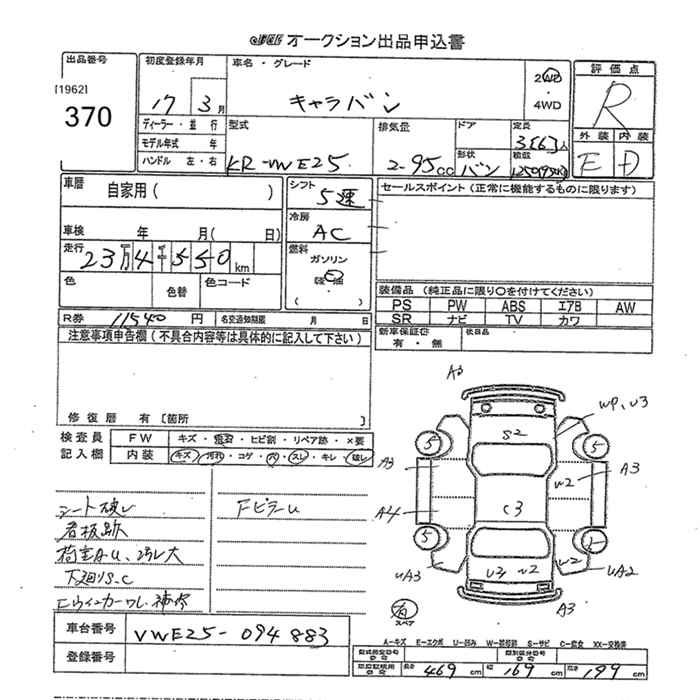 オークション出品申込書
出品番号
[1962]
370
初度登録年月
17 3月
車名・グレード
キャラバン
2WD
・
4WD
評価点
R
外装 内装
E D
ディーラー・並行
モデル年式 年
ハンドル 左・右
型式
KR-VWE25
排気量
2.95cc
ドア
形状
バン
定員
3[6]人
積載
車歴
自家用( )
車検 年 月( 日)
走行
23万4千550km
色
色替
色コード
シフト
5速
冷房
AC
燃料
ガソリン
軽油
( )
セールスポイント(正常に機能するものに限ります)
装備品(純正品に限り○を付けてください)
PS PW ABS エアB AW
SR ナビ TV カワ
新車保証書
有・無
後日品
R券 11540 円
名変通知期限 月 日
注意事項申告欄(不具合内容等は具体的に記入して下さい)
修復歴 有[箇所 ]
検査員
記入欄
FW キズ・ヒビ割・リペア跡・×要
内装 キズ・汚れ・コゲ・穴・スレ・キレ・破レ
シート破レ
看板跡
荷室A.U、汚レ大
下廻りS.C
Fウインカーワレ補修
FピラーU
A3
WP、U3
S2
5
5
A3
W2
A3
A4
C3
5
UA3
U3 W2
W2
UA2
A3
有
スペア
車台番号 VWE25-094883
登録番号
A-キズ E-エクボ U-凹み W-補修跡 S-サビ C-腐食 XX-交換済
長さ 469cm 幅 169cm 高さ 199cm